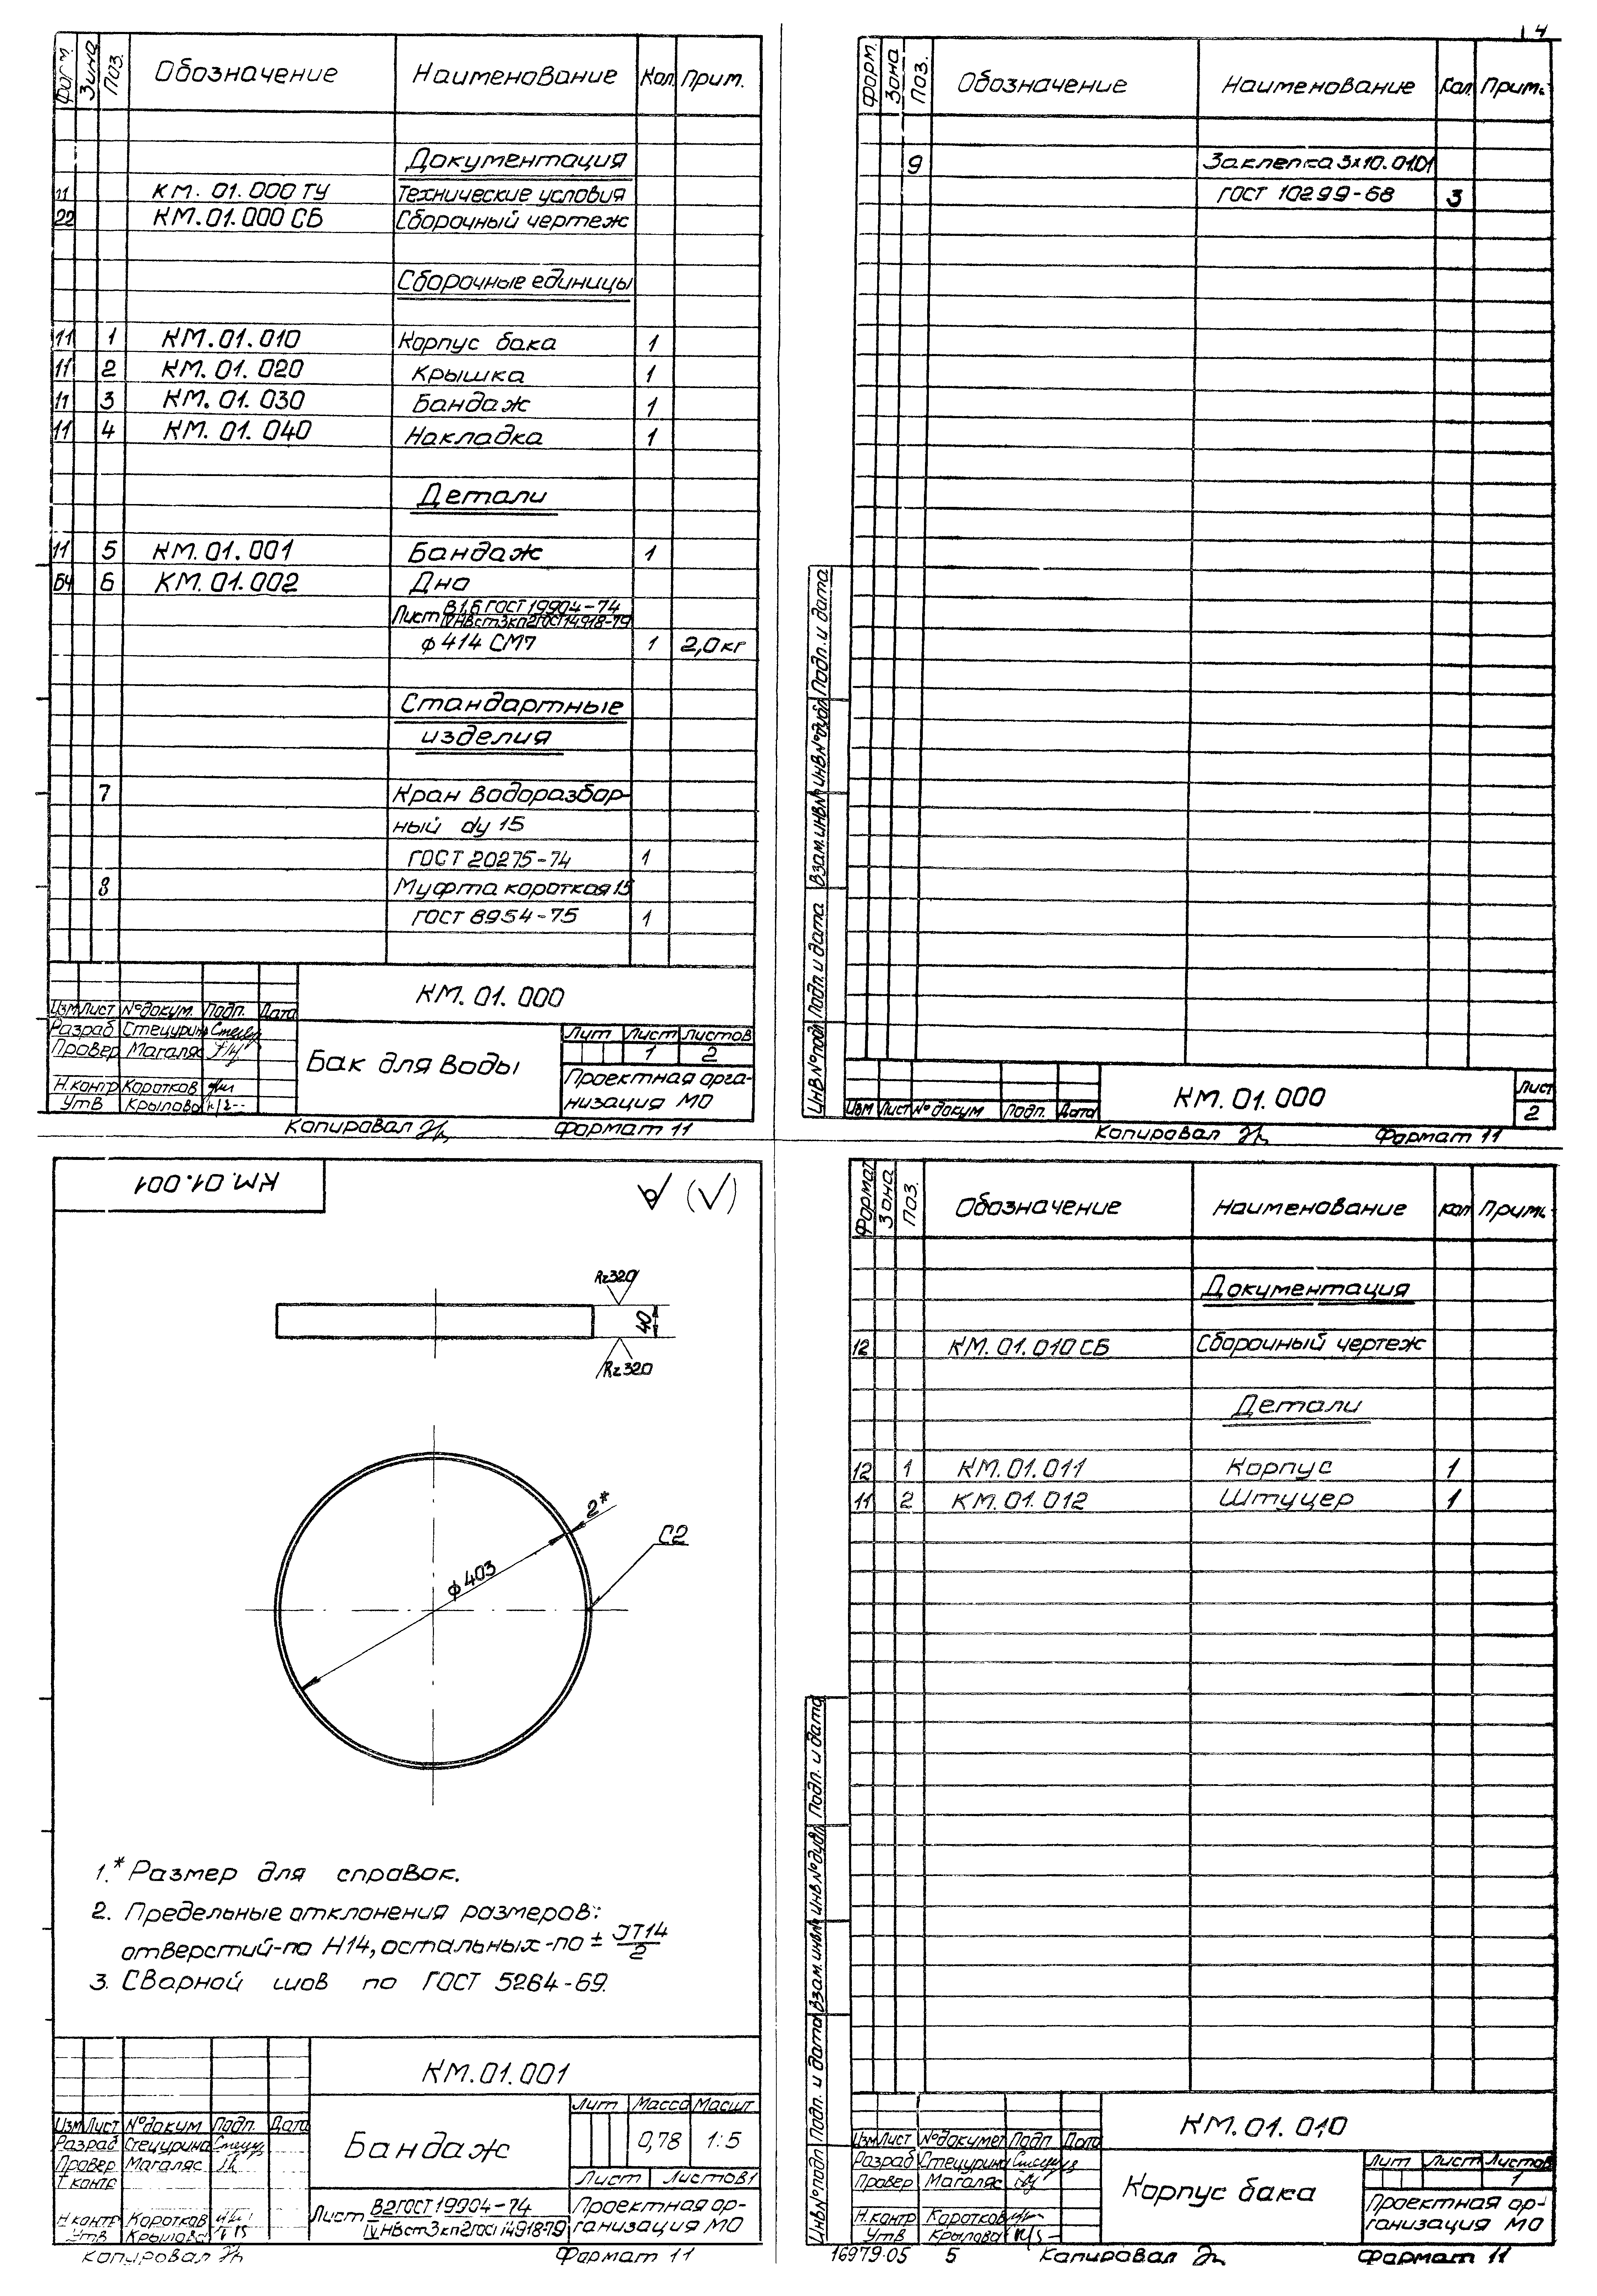 4
Форм. Зона Поз. Обозначение Наименование Кол. Прим.
Документация
11 КМ. 01.000 ТУ Технические условия
22 КМ.01.000 СБ Сборочный чертеж
Сборочные единицы
11 1 КМ.01.010 Корпус бака 1
11 2 КМ.01.020 Крышка 1
11 3 КМ.01.030 Бандаж 1
11 4 КМ.01.040 Накладка 1
Детали
11 5 КМ.01.001 Бандаж 1
БЧ 6 КМ.01.002 Дно
Лист В1,6 ГОСТ 19904-74
IVНВст3кп2ГОСТ14918-79
ф 414 СМ7 1 2,0кг
Стандартные
изделия
7 Кран водоразбор-
ный dу 15
ГОСТ 20275-74 1
8 Муфта короткая 15
ГОСТ 8954-75 1
КМ. 01. 000
Изм Лист №докум. Подп. Дата
Разраб Стецурина
Провер Магаляс
Н.контр Коротков
Утв Крылова
Бак для воды
Лит Лист Листов
1 2
Проектная орга-
низация МО
Копировал Формат 11
Форм. Зона Поз. Обозначение Наименование Кол Прим.
9 Заклепка 3х10.01.01
ГОСТ 10299-68 3
Инв№подл Подп. и дата Взам.инв№ Инв№дубл Подп. и дата
Изм Лист №докум Подп. Дата
КМ.01.000
Лист
2
Копировал Формат 11
КМ.01.001
(√)
Rz320
40
Rz320
2*
ф 403
С2
1.* Размер для справок.
2. Предельные отклонения размеров:
отверстий-по Н14, остальных-по ± JT14/2
3. Сварной шов по ГОСТ 5264-69.
КМ.01.001
Изм Лист №докум Подп. Дата
Разраб Стецурина
Провер Магаляс
Т контр
Н контр Коротков
Утв Крылова
Бандаж
Лит Масса Масшт
0,78 1:5
Лист Листов1
Лист В2ГОСТ 19904-74
IVНВст3кп2ГОСТ14918-79
Проектная ор-
ганизация МО
Копировал Формат 11
Формат Зона Поз. Обозначение Наименование Кол Прим.
Документация
12 КМ. 01. 010 СБ Сборочный чертеж
Детали
12 1 КМ.01.011 Корпус 1
11 2 КМ.01.012 Штуцер 1
Инв№подл Подп. и дата Взам.инв№ Инв№дубл Подп. и дата
КМ.01.010
Изм Лист №докумен Подп Дата
Разраб Стецурина
Провер Магаляс
Н.контр Коротков
Утв Крылова
Корпус бака
Лит Лист Листов
1
Проектная ор-
ганизация МО
16979-05 5 Копировал Формат 11